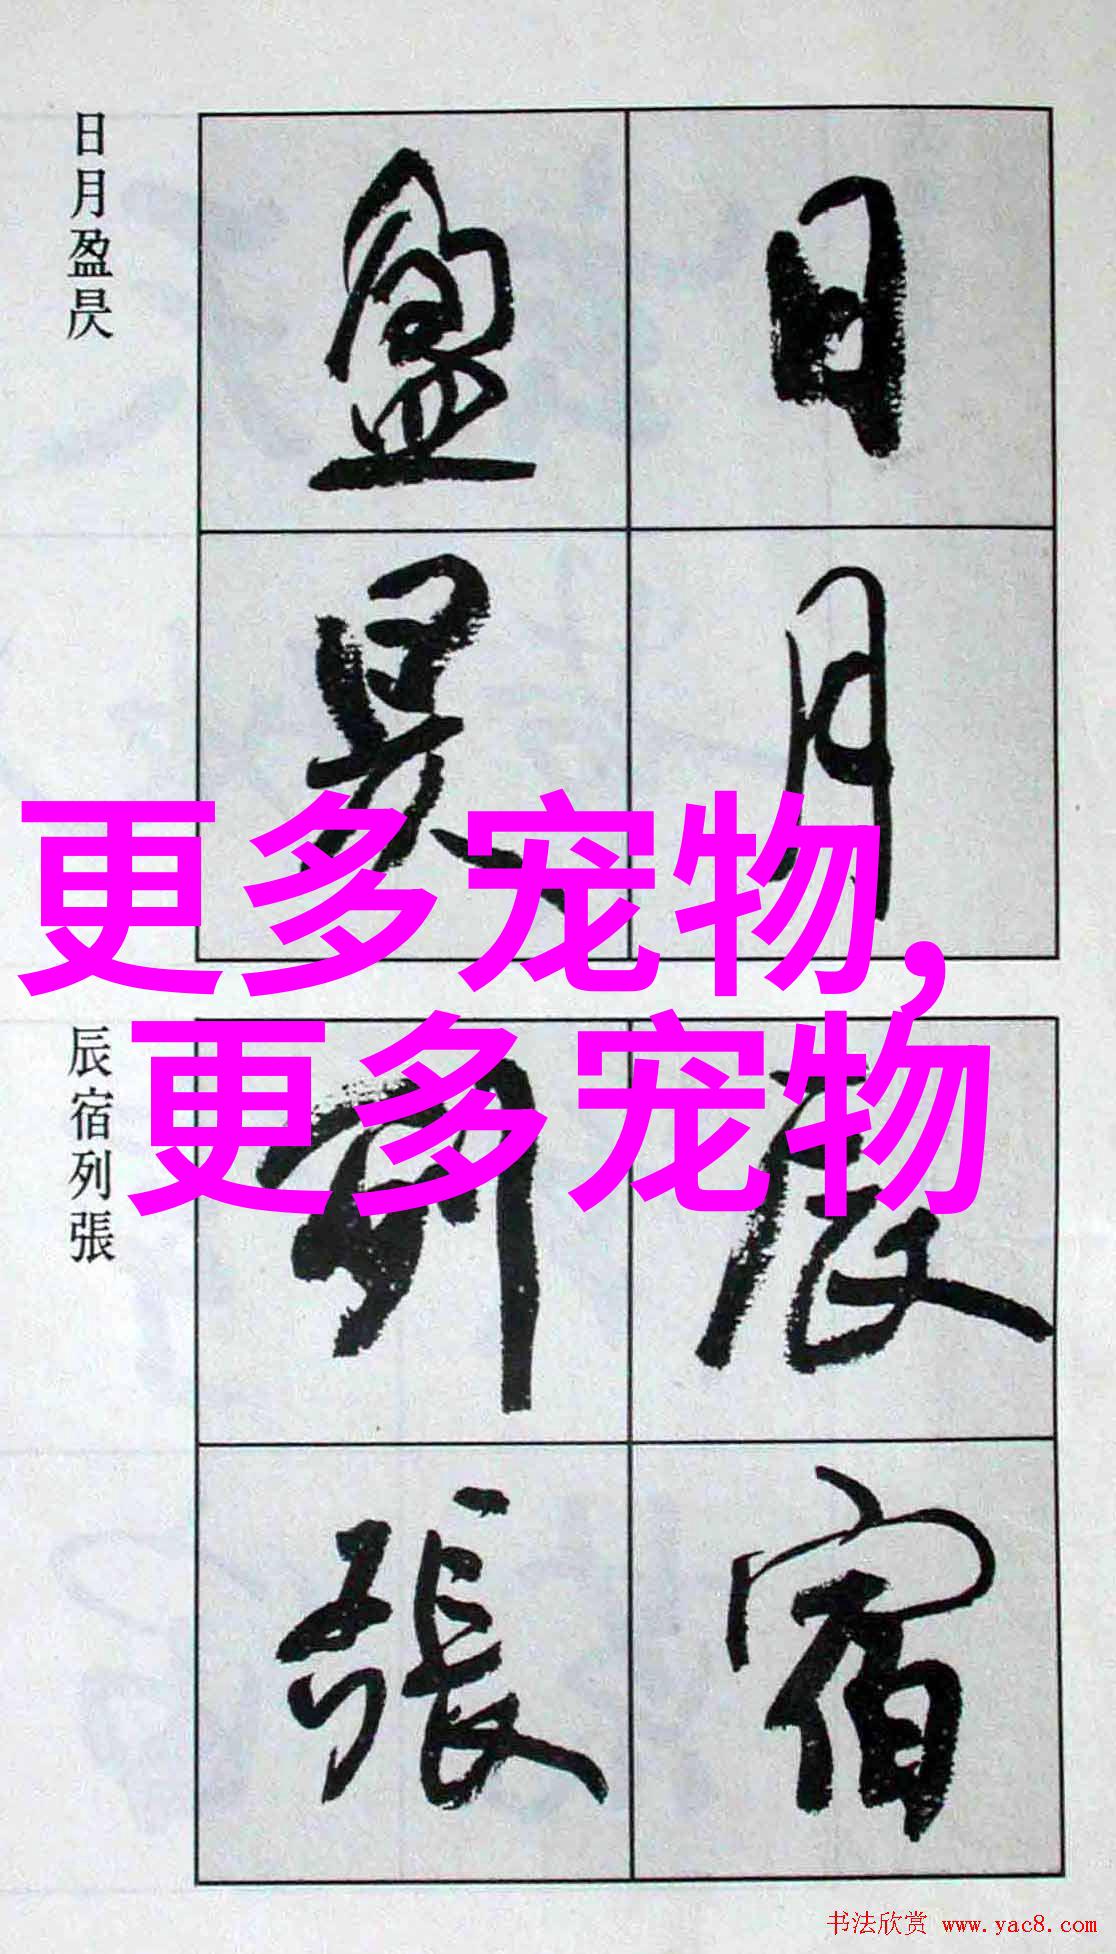 日月盈昃
日
月
盈
昃
更多宠物,
更多宠物
辰宿列張
辰
宿
列
張
书法欣赏 www.yac8.com